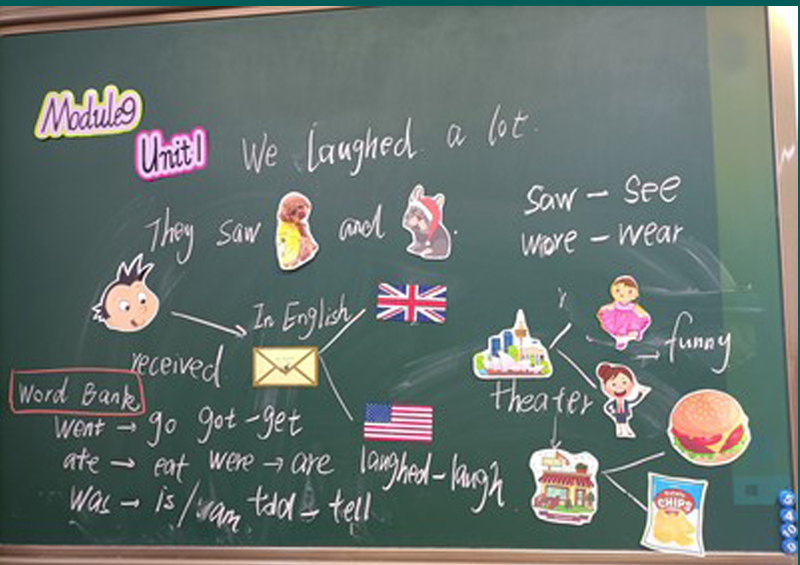 Module9
Unit1 We laughed a lot.
They saw and .
saw - see
wore - wear
In English
received
theater
funny
Word Bank
went → go got - get
ate → eat were → are laughed - laugh
was → is/am told - tell
CHIPS